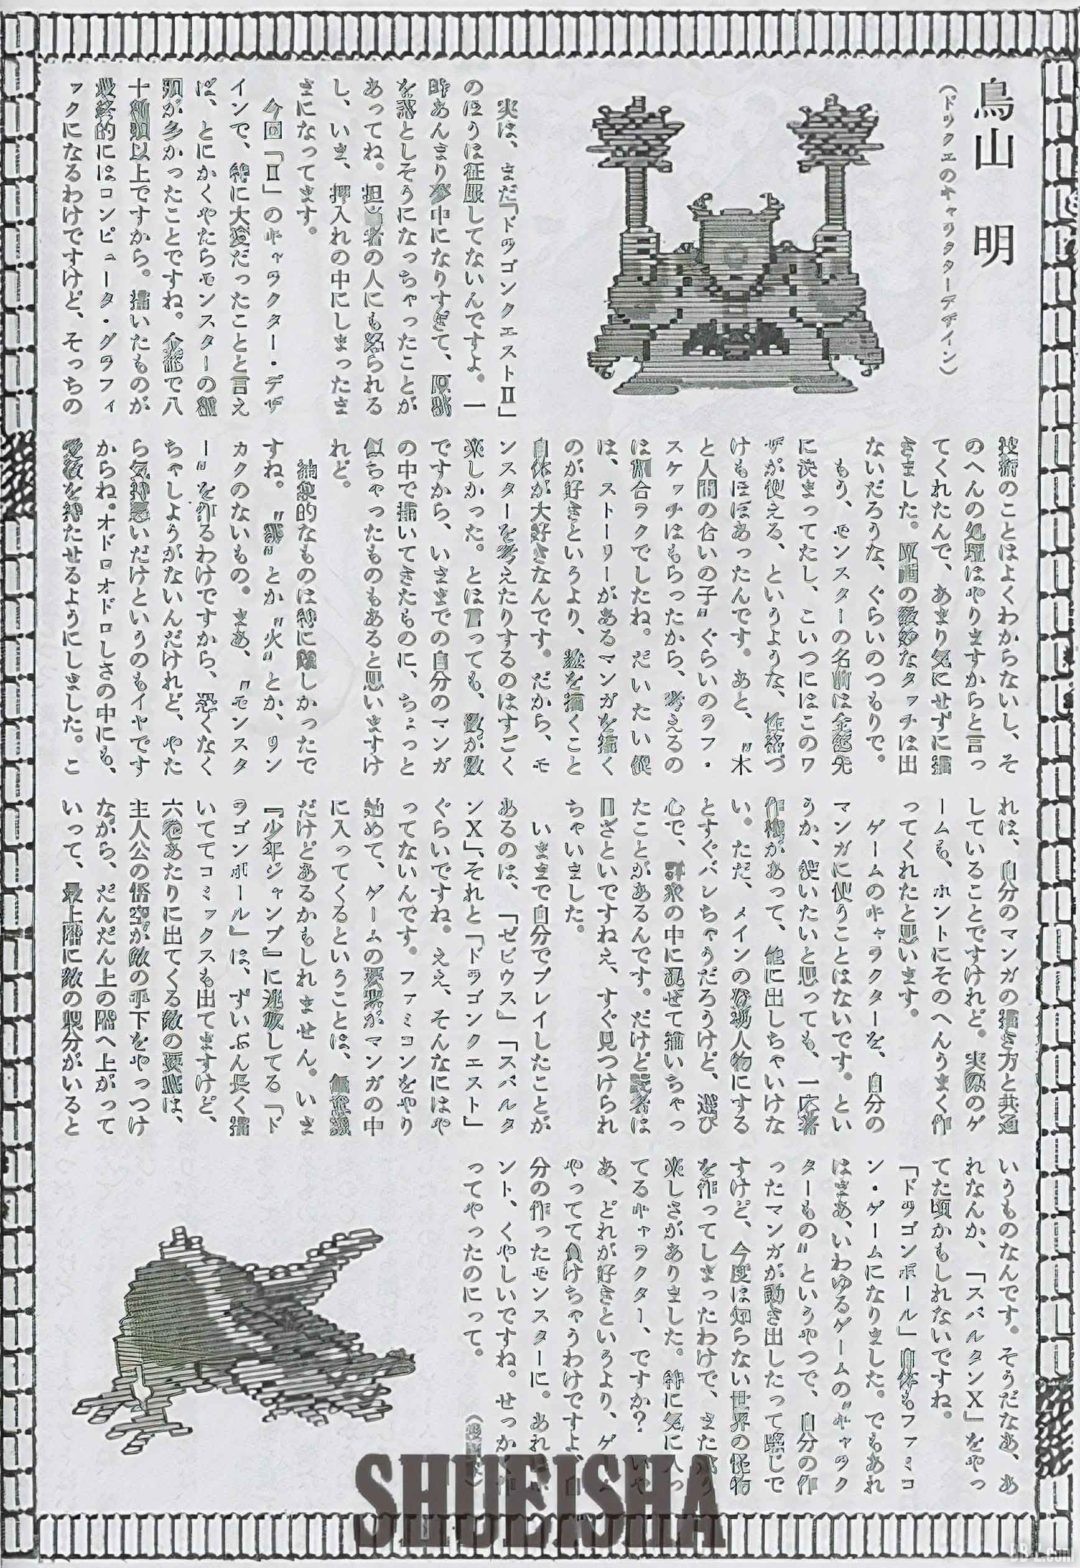 鳥山 明
（ドラクエのキャラクターデザイン）
実は、まだ「ドラゴンクエストⅡ」
のほうは征服してないんですよ。一
時あんまり夢中になりすぎて、原稿
を落としそうになっちゃったことが
あってね。担当者の人にも怒られる
し、いま、押入れの中にしまったま
まになってます。
今回「Ⅱ」のキャラクター・デザ
インで、特に大変だったことと言え
ば、とにかくやたらモンスターの種
類が多かったことですね。全部で八
十種類以上ですから。描いたものが
最終的にはコンピュータ・グラフィ
ックになるわけですけど、そっちの
技術のことはよくわからないし、そ
のへんの処理はやりますからと言っ
てくれたんで、あまり気にせずに描
きました。原画の微妙なタッチは出
ないだろうな、ぐらいのつもりで。
もう、モンスターの名前は全部先
に決まってたし、こいつにはこのワ
ザが使える、というような、性格づ
けもほぼあったんです。あと、〝木
と人間の合いの子〟ぐらいのラフ・
スケッチはもらったから、考えるの
は割合ラクでしたね。だいたい僕
は、ストーリーがあるマンガを描く
のが好きというより、絵を描くこと
自体が大好きなんです。だから、モ
ンスターを考えたりするのはすごく
楽しかった。とは言っても、数が数
ですから、いままでの自分のマンガ
の中で描いてきたものに、ちょっと
似ちゃったものもあると思いますけ
れど。
抽象的なものは特に難しかったで
すね。〝霧〟とか〝火〟とか、リン
カクのないもの。まあ、〝モンスタ
ー〟を作るわけですから、恐くなく
ちゃしようがないんだけれど、やた
ら気持悪いだけというのもイヤです
からね。オドロオドロしさの中にも、
愛敬を持たせるようにしました。こ
れは、自分のマンガの描き方と共通
していることですけれど。実際のゲ
ームも、ホントにそのへんうまく作
ってくれたと思います。
ゲームのキャラクターを、自分の
マンガに使うことはないです。とい
うか、使いたいと思っても、一応著
作権があって、他に出しちゃいけな
い。ただ、メインの登場人物にする
とすぐバレちゃうだろうけど、遊び
心で、群衆の中に混ぜて描いちゃっ
たことがあるんです。だけど読者は
目ざといですねえ、すぐ見つけられ
ちゃいました。
いままで自分でプレイしたことが
あるのは、「ゼビウス」「スパルタ
ンX」、それと「ドラゴンクエスト」
ぐらいですね。ええ、そんなにはや
ってないんです。ファミコンをやり
始めて、ゲームの要素がマンガの中
に入ってくるということは、無意識
だけどあるかもしれません。いま
『少年ジャンプ』に連載してる「ド
ラゴンボール」は、ずいぶん長く描
いててコミックスも出てますけど、
六巻あたりに出てくる敵の要塞は、
主人公の悟空が敵の手下をやっつけ
ながら、だんだん上の階へ上がって
いって、最上階に敵の親分がいると
いうものなんです。そうだなあ、あ
れなんか、「スパルタンX」をやっ
てた頃かもしれないですね。
「ドラゴンボール」自体もファミコ
ン・ゲームになりました。でもあれ
はまあ、いわゆるゲームの〝キャラク
ターもの〟というやつで、自分の作
ったマンガが動き出したって感じで
すけど、今度は知らない世界の怪物
を作ってしまったわけで、また違う
楽しさがありました。特に気に入っ
てるキャラクター、ですか？ いや
あ、どれが好きというより、ゲ
やってて負けちゃうわけですよ、自
分の作ったモンスターに。あれは
ント、くやしいですね。せっかく作
ってやったのにって。
SHUEISHA